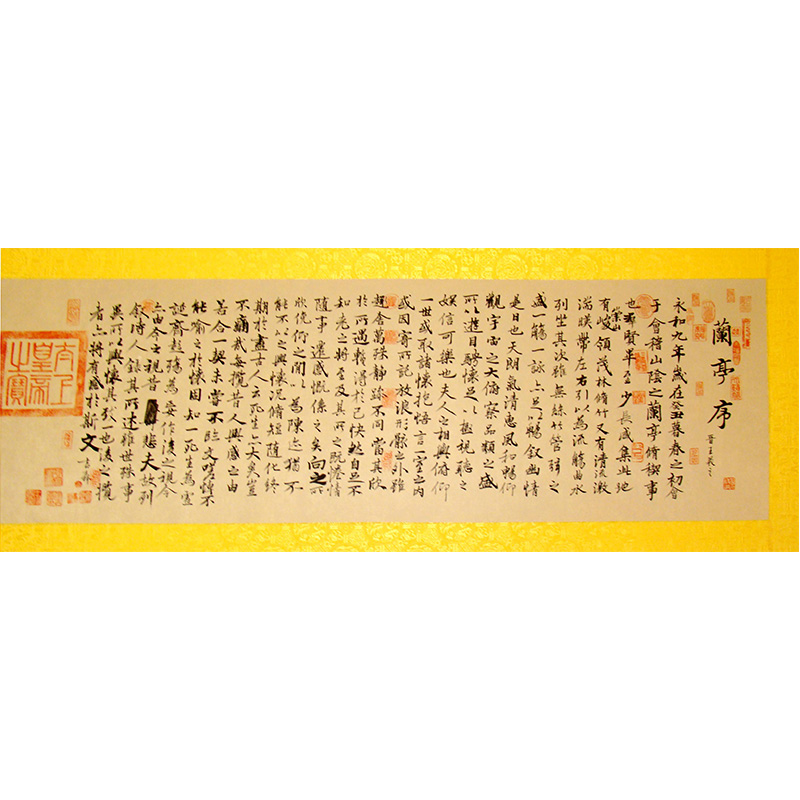 蘭亭序
晉王羲之
永和九年歲在癸丑暮春之初會
于會稽山陰之蘭亭脩稧事
也群賢畢至少長咸集此地
有崇山峻領茂林脩竹又有清流激
湍暎帶左右引以為流觴曲水
列坐其次雖無絲竹管弦之
盛一觴一詠亦足以暢敘幽情
是日也天朗氣清惠風和暢仰
觀宇宙之大俯察品類之盛
所以遊目騁懷足以極視聽之
娛信可樂也夫人之相與俯仰
一世或取諸懷抱悟言一室之內
或因寄所託放浪形骸之外雖
趣舍萬殊靜躁不同當其欣
於所遇暫得於己快然自足不
知老之將至及其所之既惓情
隨事遷感慨係之矣向之所
欣俛仰之間以為陳迹猶不
能不以之興懷況脩短隨化終
期於盡古人云死生亦大矣豈
不痛哉每攬昔人興感之由
若合一契未嘗不臨文嗟悼不
能喻之於懷固知一死生為虛
誕齊彭殤為妄作後之視今
亦由今之視昔悲夫故列
敘時人錄其所述雖世殊事
異所以興懷其致一也後之攬
者亦將有感於斯文
太上皇帝之寶